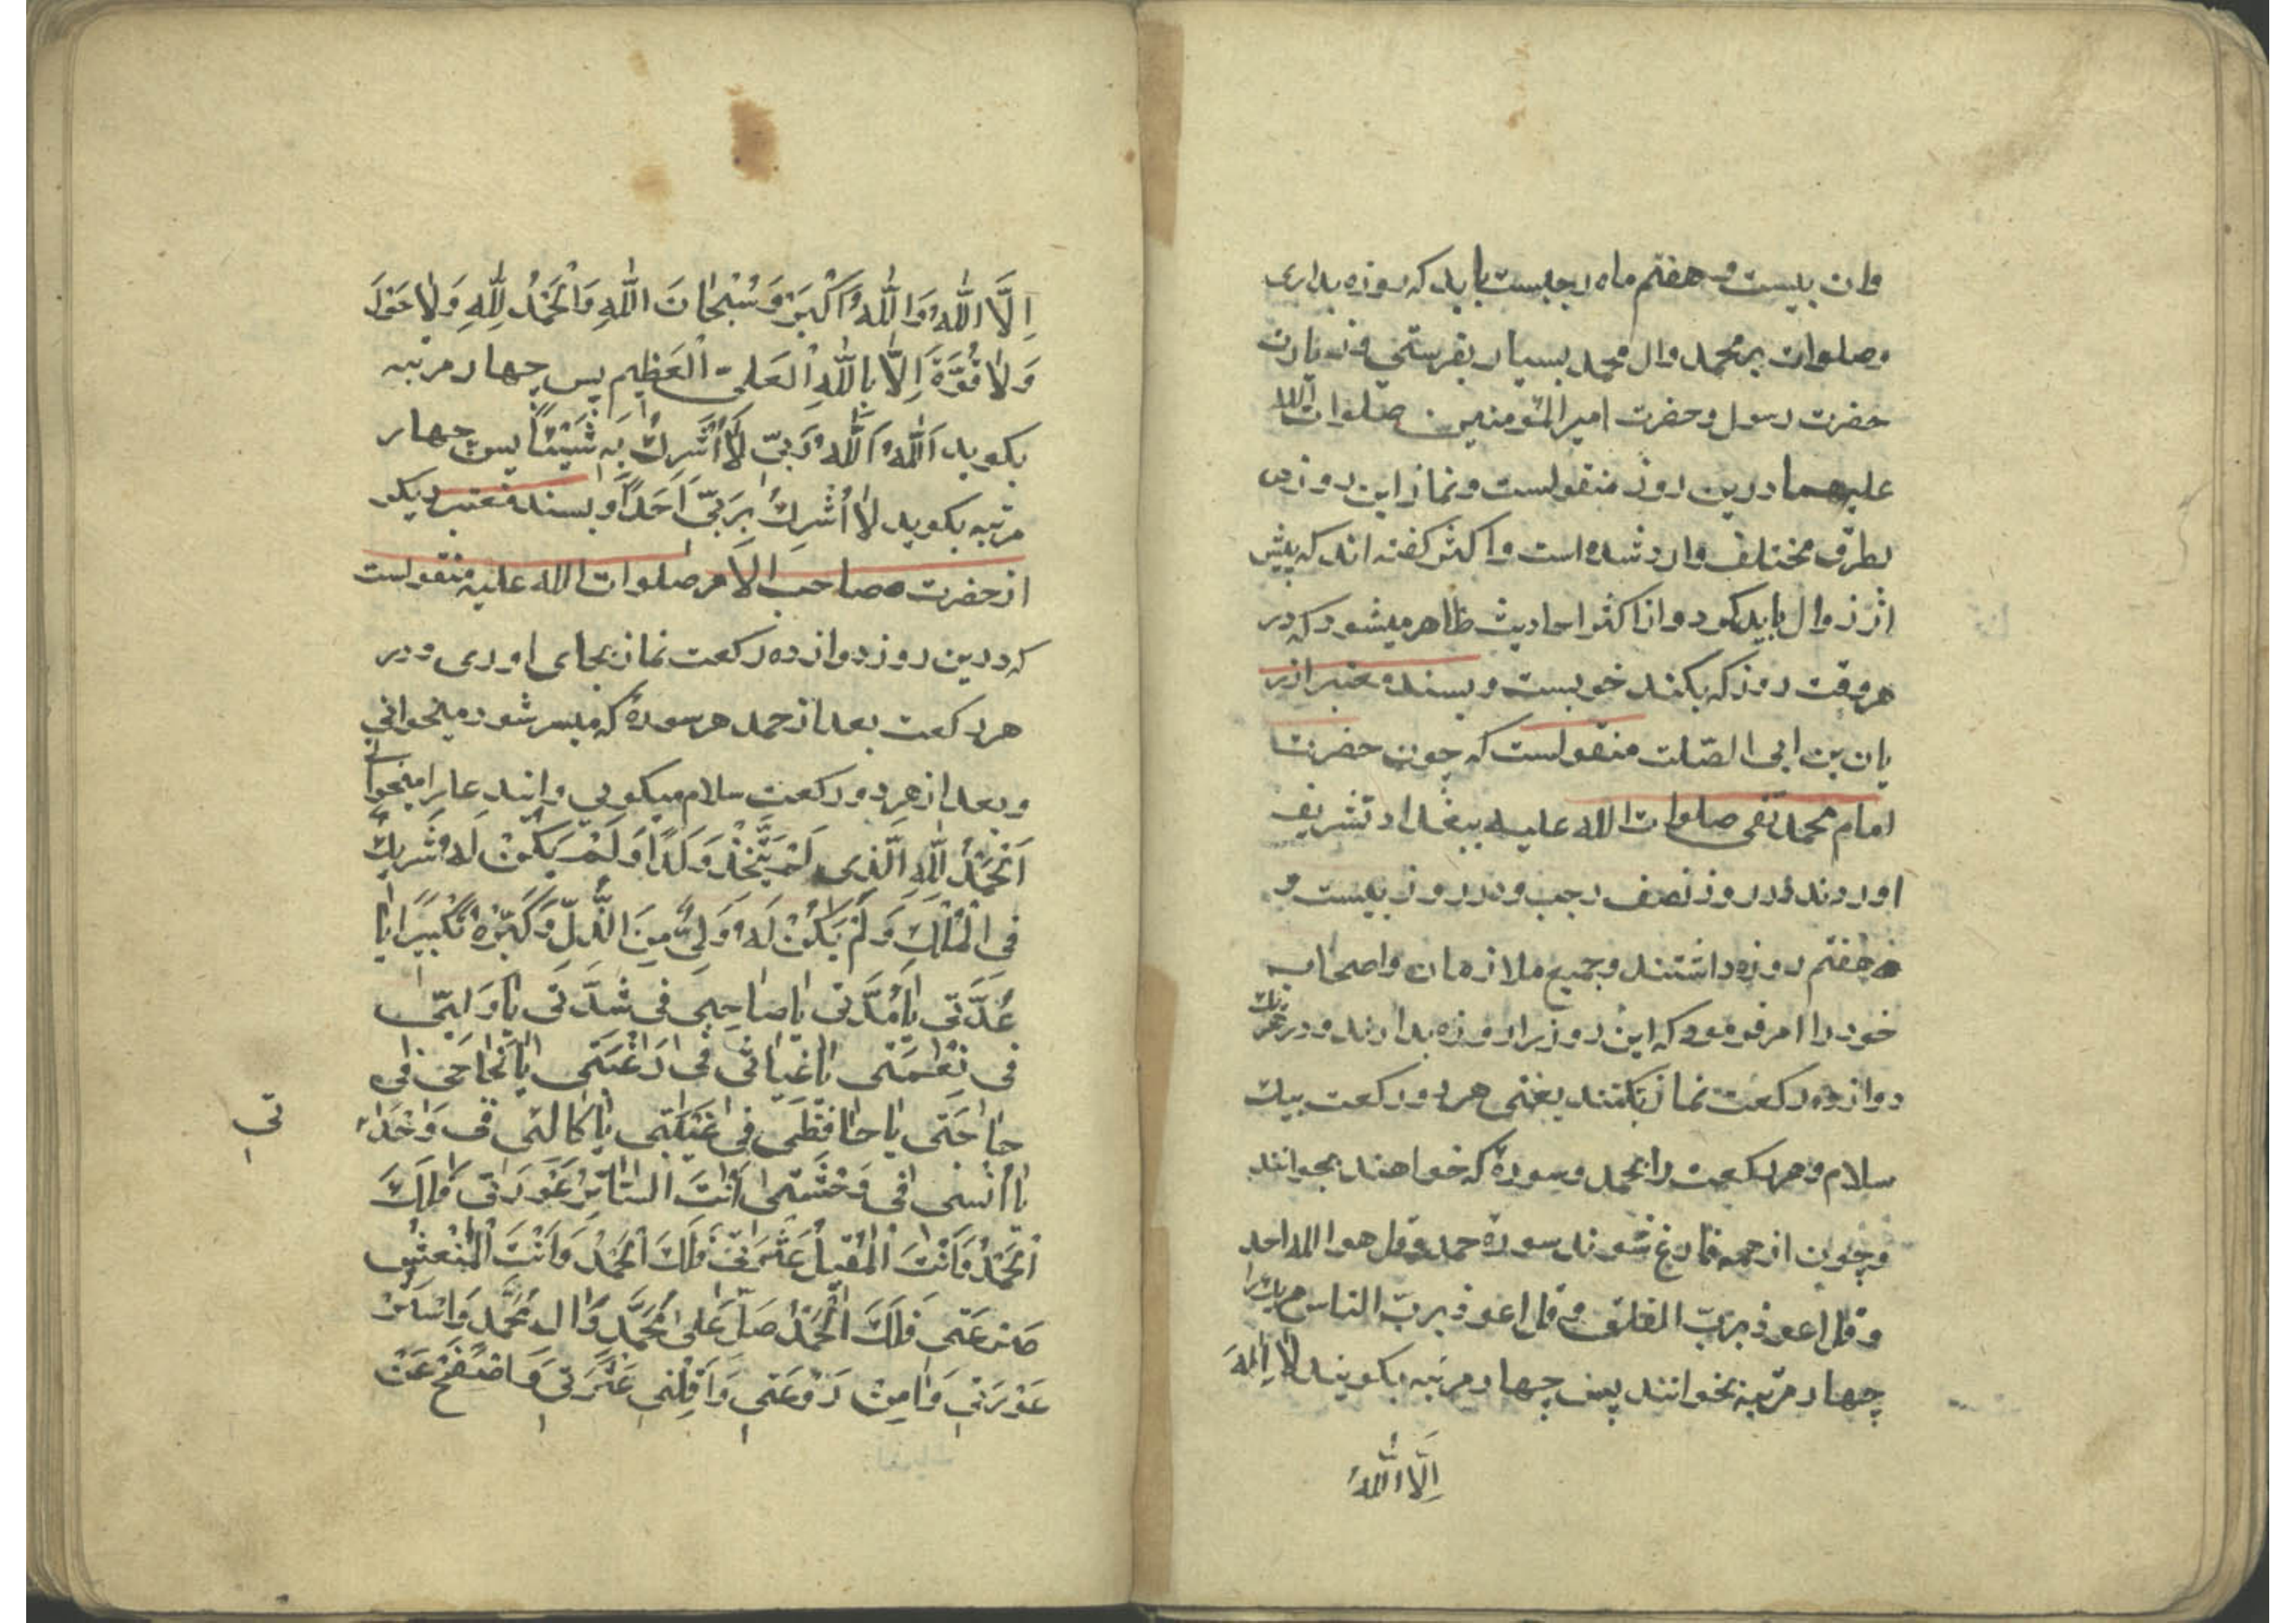 وان بیست و هفتم ماه رجبست باید که روزه بداری
وصلوات بر محمد وال محمد بسیار بفرستی و زیارت
حضرت رسول و حضرت امیر المؤمنین صلوات الله
علیهما درین روز منقولست و نماز این روز
بطرق مختلف وارد شده است و اکثر کفته اند که پیش
از زوال باید کرد و از اکثر احادیث ظاهر میشود که در
هر وقت روز که بکند خوبست و بسند معتبر از ر
یان بن ابی الصّلت منقولست که چون حضرت
امام محمد تقی صلوات الله علیه ببغداد تشریف
اوردند در روز نصف رجب و در روز بیست و
هفتم روزه داشتند و جمیع ملازمان و اصحاب
خود را امر فرمود که این روز را روزه بدارند و در
دوازده رکعت نماز بکنند یعنی هر دو رکعت بیک
سلام و هر رکعت را بحمد و سورهٔ که خواهند بخوانند
و چون از همه فارغ شوند سورهٔ حمد و قل هو الله احد
و قل اعوذ بربّ الفلق و قل اعوذ بربّ الناس هر یک را
چهار مرتبه بخوانند پس چهار مرتبه بکویند لَا اِلٰهَ
اِلَّا اللّٰهُ
اِلَّا اللّٰهُ وَاللّٰهُ اَکْبَرُ وَ سُبْحَانَ اللّٰهِ وَالْحَمْدُ لِلّٰهِ وَلَا حَوْلَ
وَلَا قُوَّةَ اِلَّا بِاللّٰهِ الْعَلِیِّ الْعَظِیمِ پس چهار مرتبه
بکوید اَللّٰهُ اَللّٰهُ رَبِّی لَا اُشْرِكُ بِهِ شَیْئًا پس چهار
مرتبه بکوید لَا اُشْرِكُ بِرَبِّی اَحَدًا و بسند معتبر دیکر
از حضرت صاحب الامر صلوات الله علیه منقولست
که درین روز دوازده رکعت نماز بجای اوری و در
هر رکعت بعد از حمد هر سورهٔ که میسر شود میخوانی
و بعد از هر دو رکعت سلام میکویی و این دعا را میخوانی
اَلْحَمْدُ لِلّٰهِ الَّذِی لَمْ یَتَّخِذْ وَلَدًا وَلَمْ یَکُنْ لَهُ شَرِیكٌ
فِی الْمُلْكِ وَلَمْ یَکُنْ لَهُ وَلِیٌّ مِنَ الذُّلِّ وَکَبِّرْهُ تَکْبِیرًا یَا
عُدَّتِی یَا مُدَّتِی یَا صَاحِبِی فِی شِدَّتِی یَا وَلِیِّی
فِی نِعْمَتِی یَا غِیَاثِی فِی رَغْبَتِی یَا نَجَاحِی فِی
حَاجَتِی یَا حَافِظِی فِی غَیْبَتِی یَا کَالِئِی فِی وَحْدَ
تِی
یَا اُنْسِی فِی وَحْشَتِی اَنْتَ السَّاتِرُ عَوْرَتِی فَلَكَ
الْحَمْدُ وَاَنْتَ الْمُقِیلُ عَثْرَتِی فَلَكَ الْحَمْدُ وَاَنْتَ الْمُنْعِشُ
صَرْعَتِی فَلَكَ الْحَمْدُ صَلِّ عَلَی مُحَمَّدٍ وَالِ مُحَمَّدٍ وَاسْتُرْ
عَوْرَتِی وَاٰمِنْ رَوْعَتِی وَاَقِلْنِی عَثْرَتِی وَاصْفَحْ عَنْ